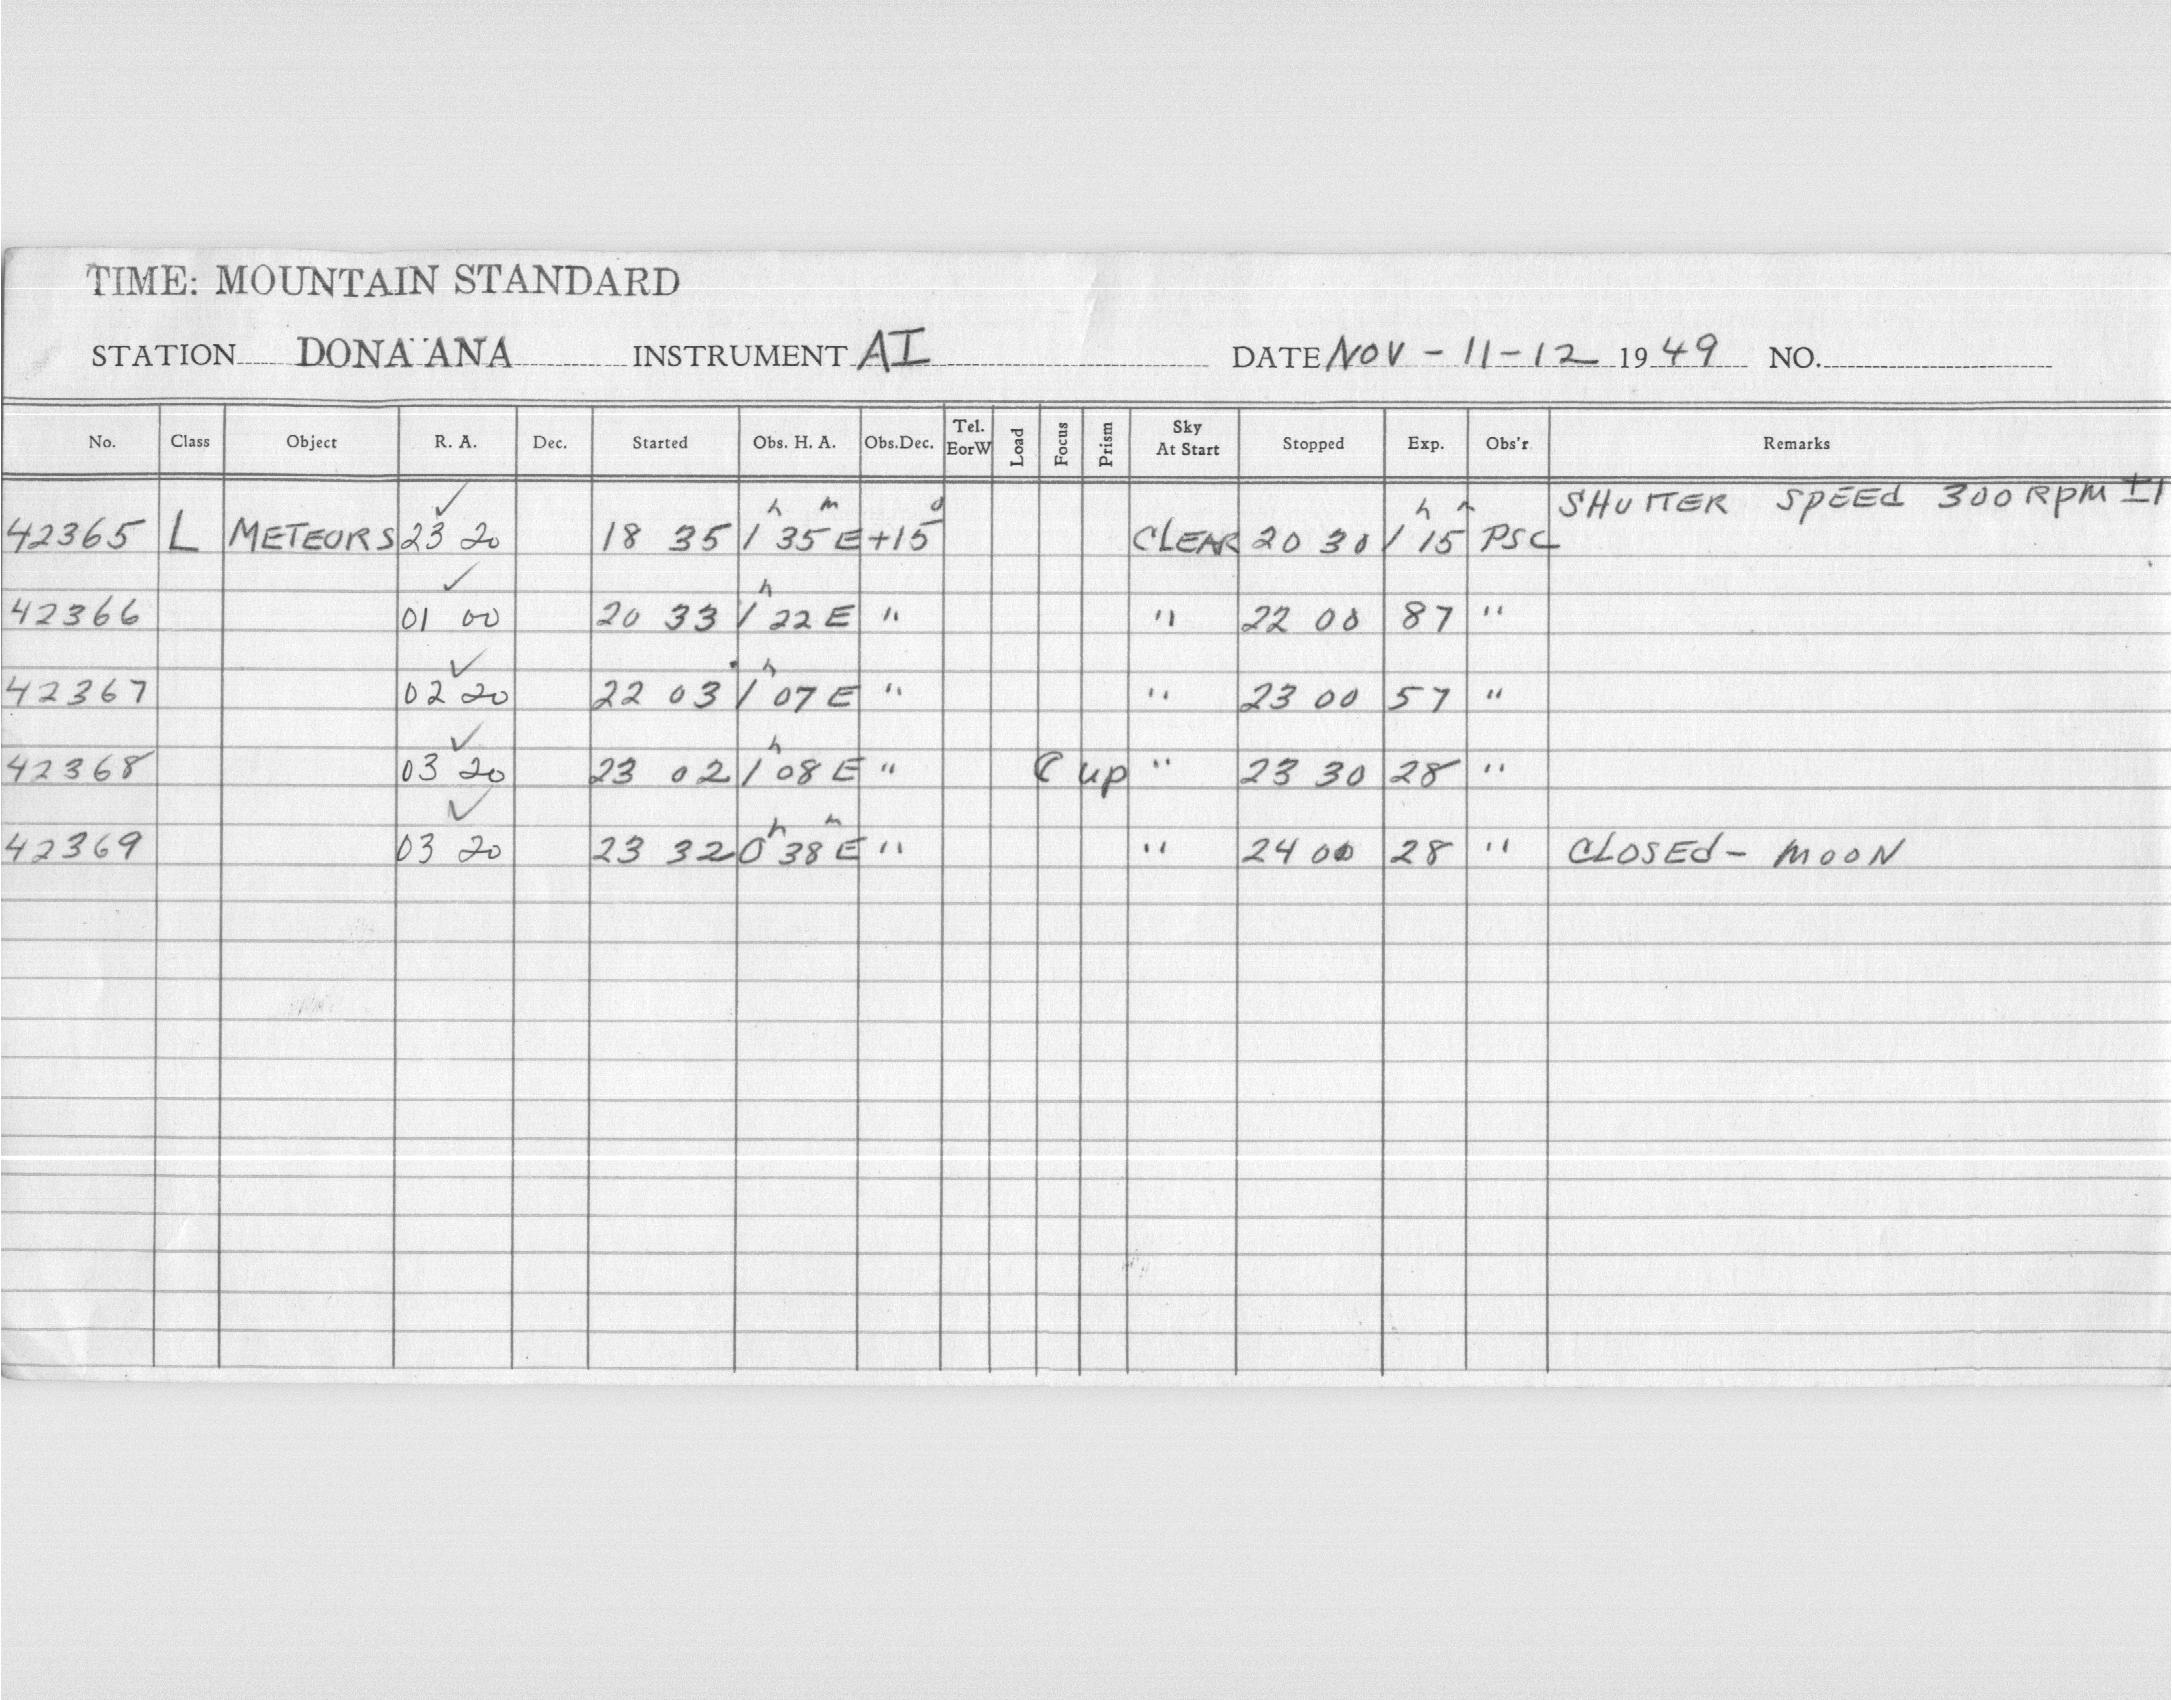 TIME: MOUNTAIN STANDARD
STATION DONA ANA INSTRUMENT AI DATE NOV - 11-12 1949 NO.
No. Class Object R. A. Dec. Started Obs. H. A. Obs.Dec. Tel. EorW Load Focus Prism Sky At Start Stopped Exp. Obs'r Remarks
42365 L METEORS 23 20 18 35 1h 35m E +15° CLEAR 20 30 1h 15m PSC SHUTTER SPEED 300 RPM ±1
42366 01 00 20 33 1h 22 E " " 22 00 87 "
42367 02 20 22 03 1h 07 E " " 23 00 57 "
42368 03 20 23 02 1h 08 E " up " 23 30 28 "
42369 03 20 23 32 0h 38m E " " 24 00 28 " CLOSED - MOON